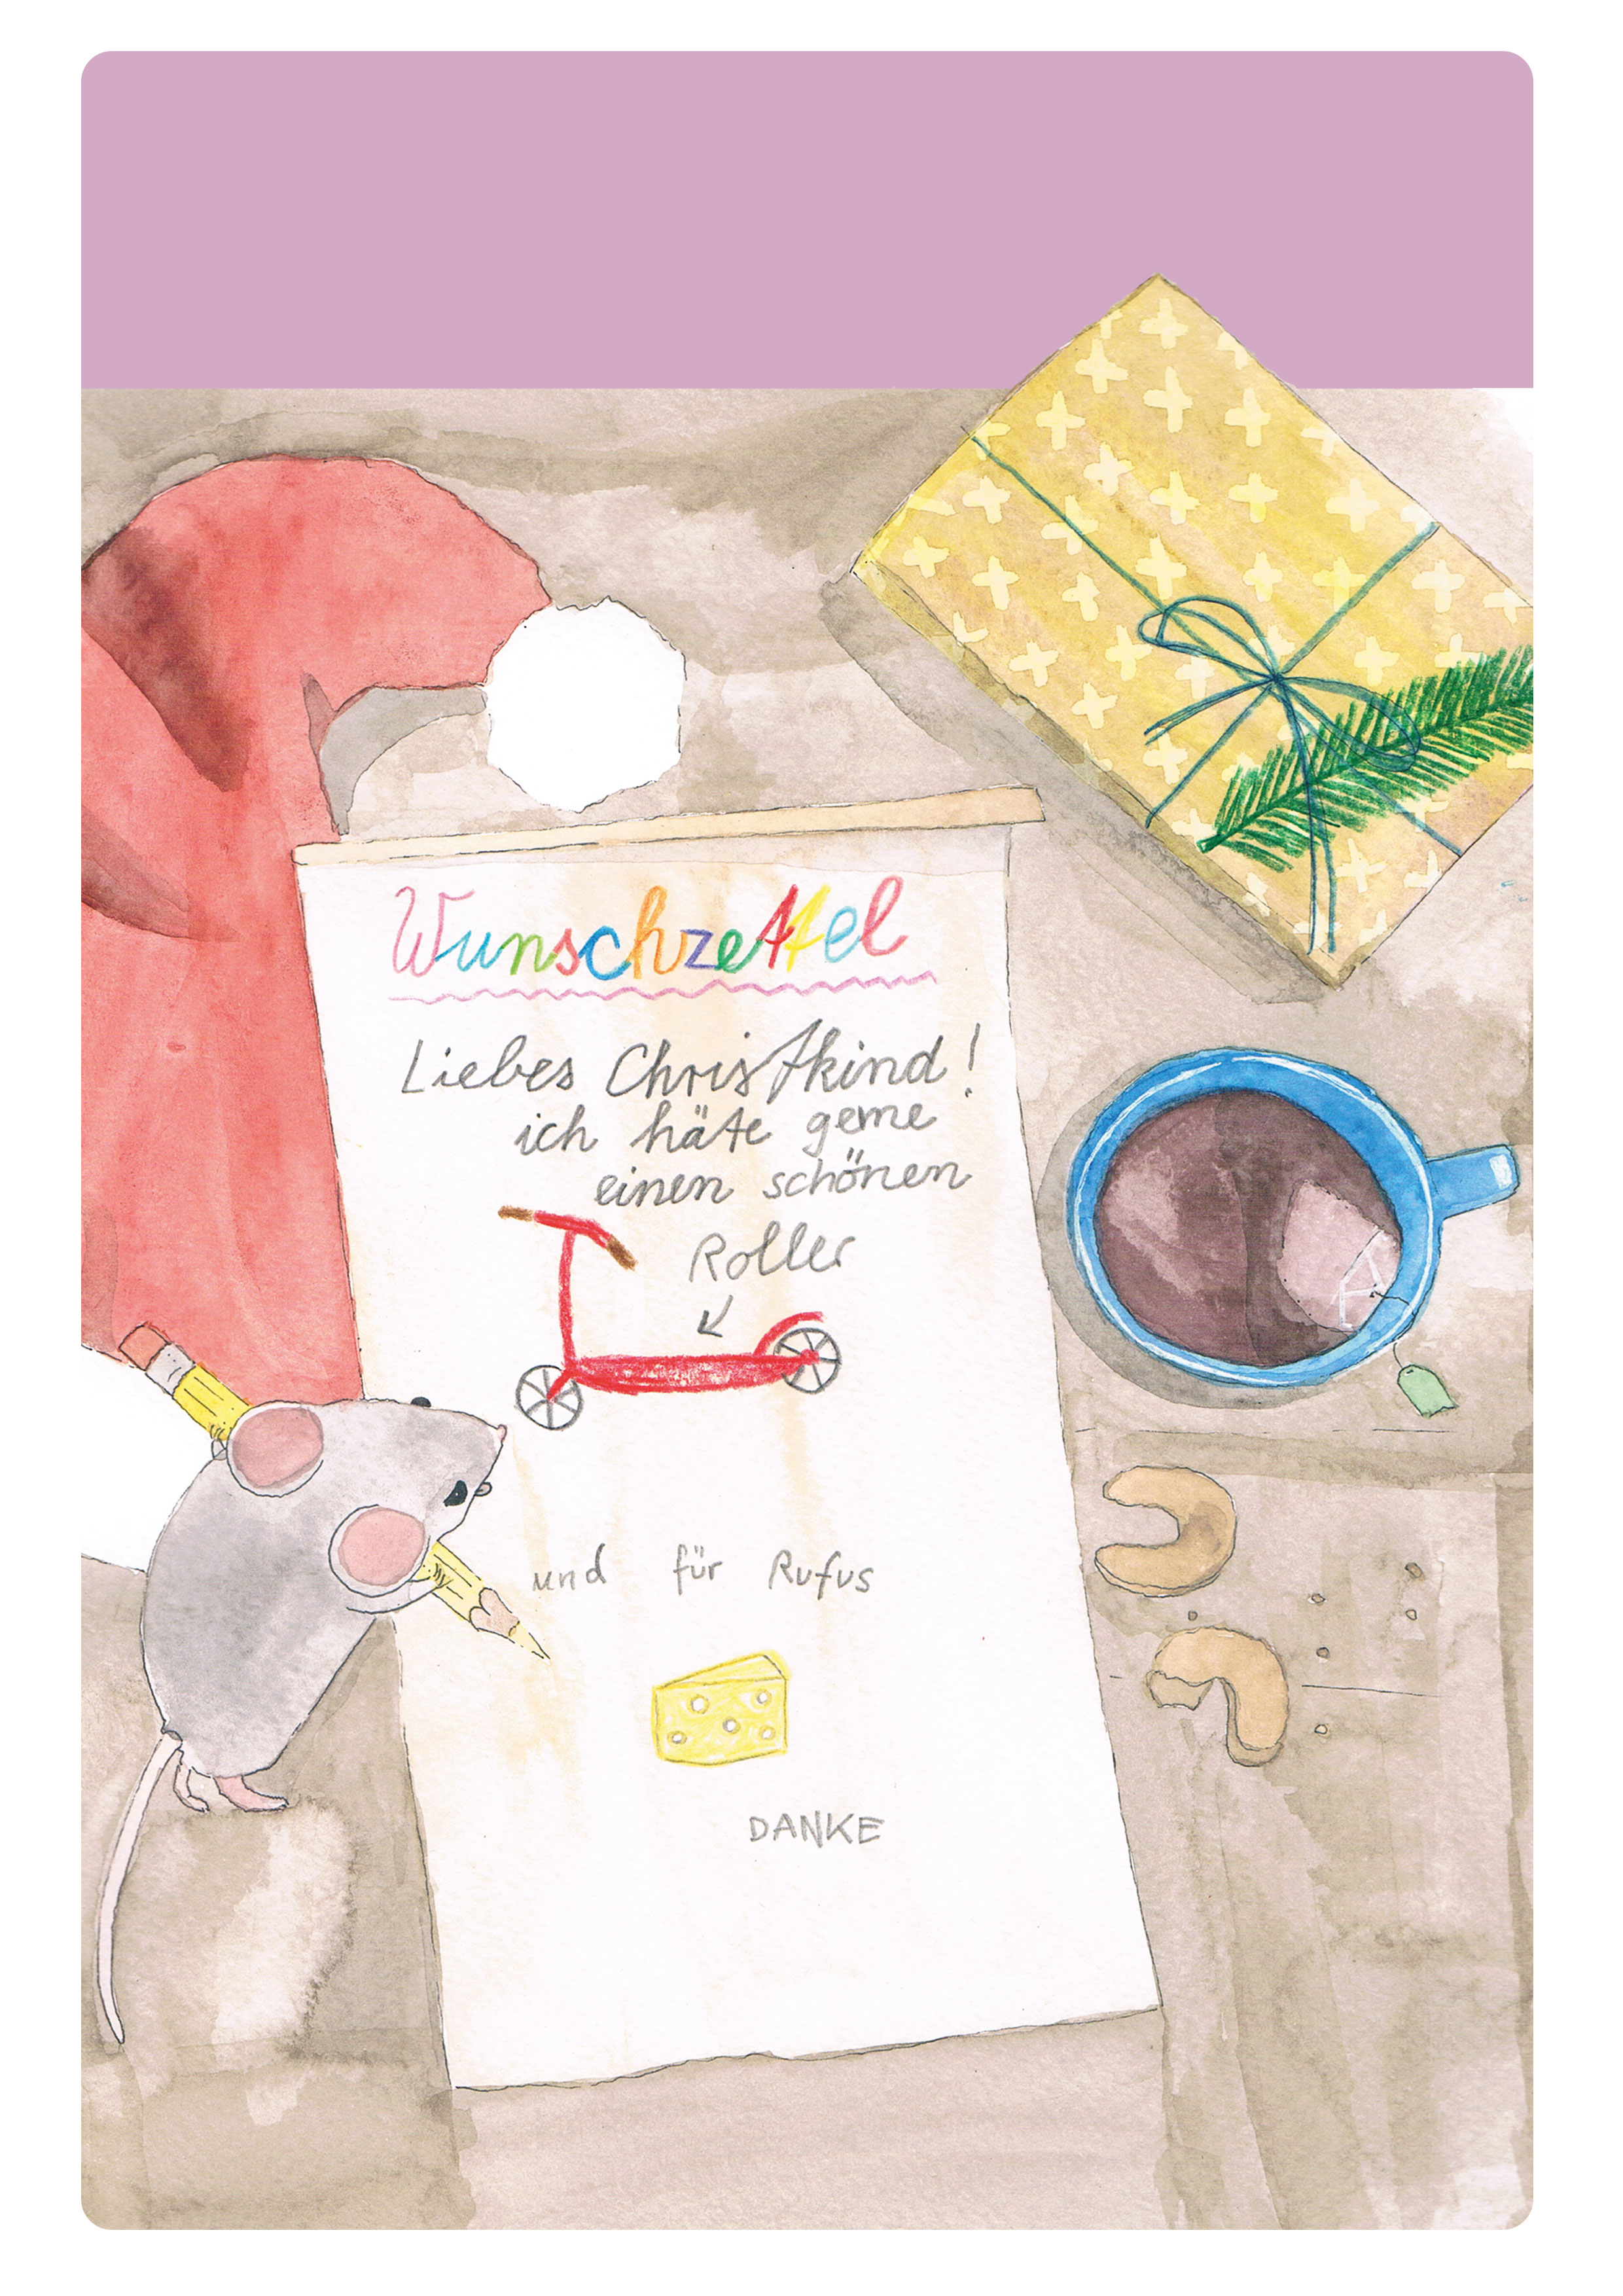 Wunschzettel
Liebes Christkind!
ich häte gerne
einen schönen
Roller
und für Rufus
DANKE